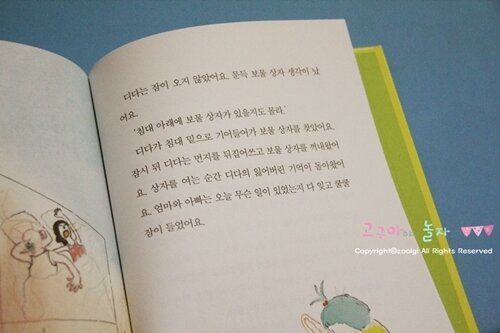 디다는 잠이 오지 않았어요. 문득 보물 상자 생각이 났
어요.
'침대 아래에 보물 상자가 있을지도 몰라.'
디다가 침대 밑으로 기어들어가 보물 상자를 찾았어요.
잠시 뒤 디다는 먼지를 뒤집어쓰고 보물 상자를 꺼내왔어
요. 상자를 여는 순간 디다의 잃어버린 기억이 돌아왔어
요. 엄마와 아빠는 오늘 무슨 일이 있었는지 다 잊고 쿨쿨
잠이 들었어요.
고구마야 놀자
Copyright@zoolgi All Rights Reserved